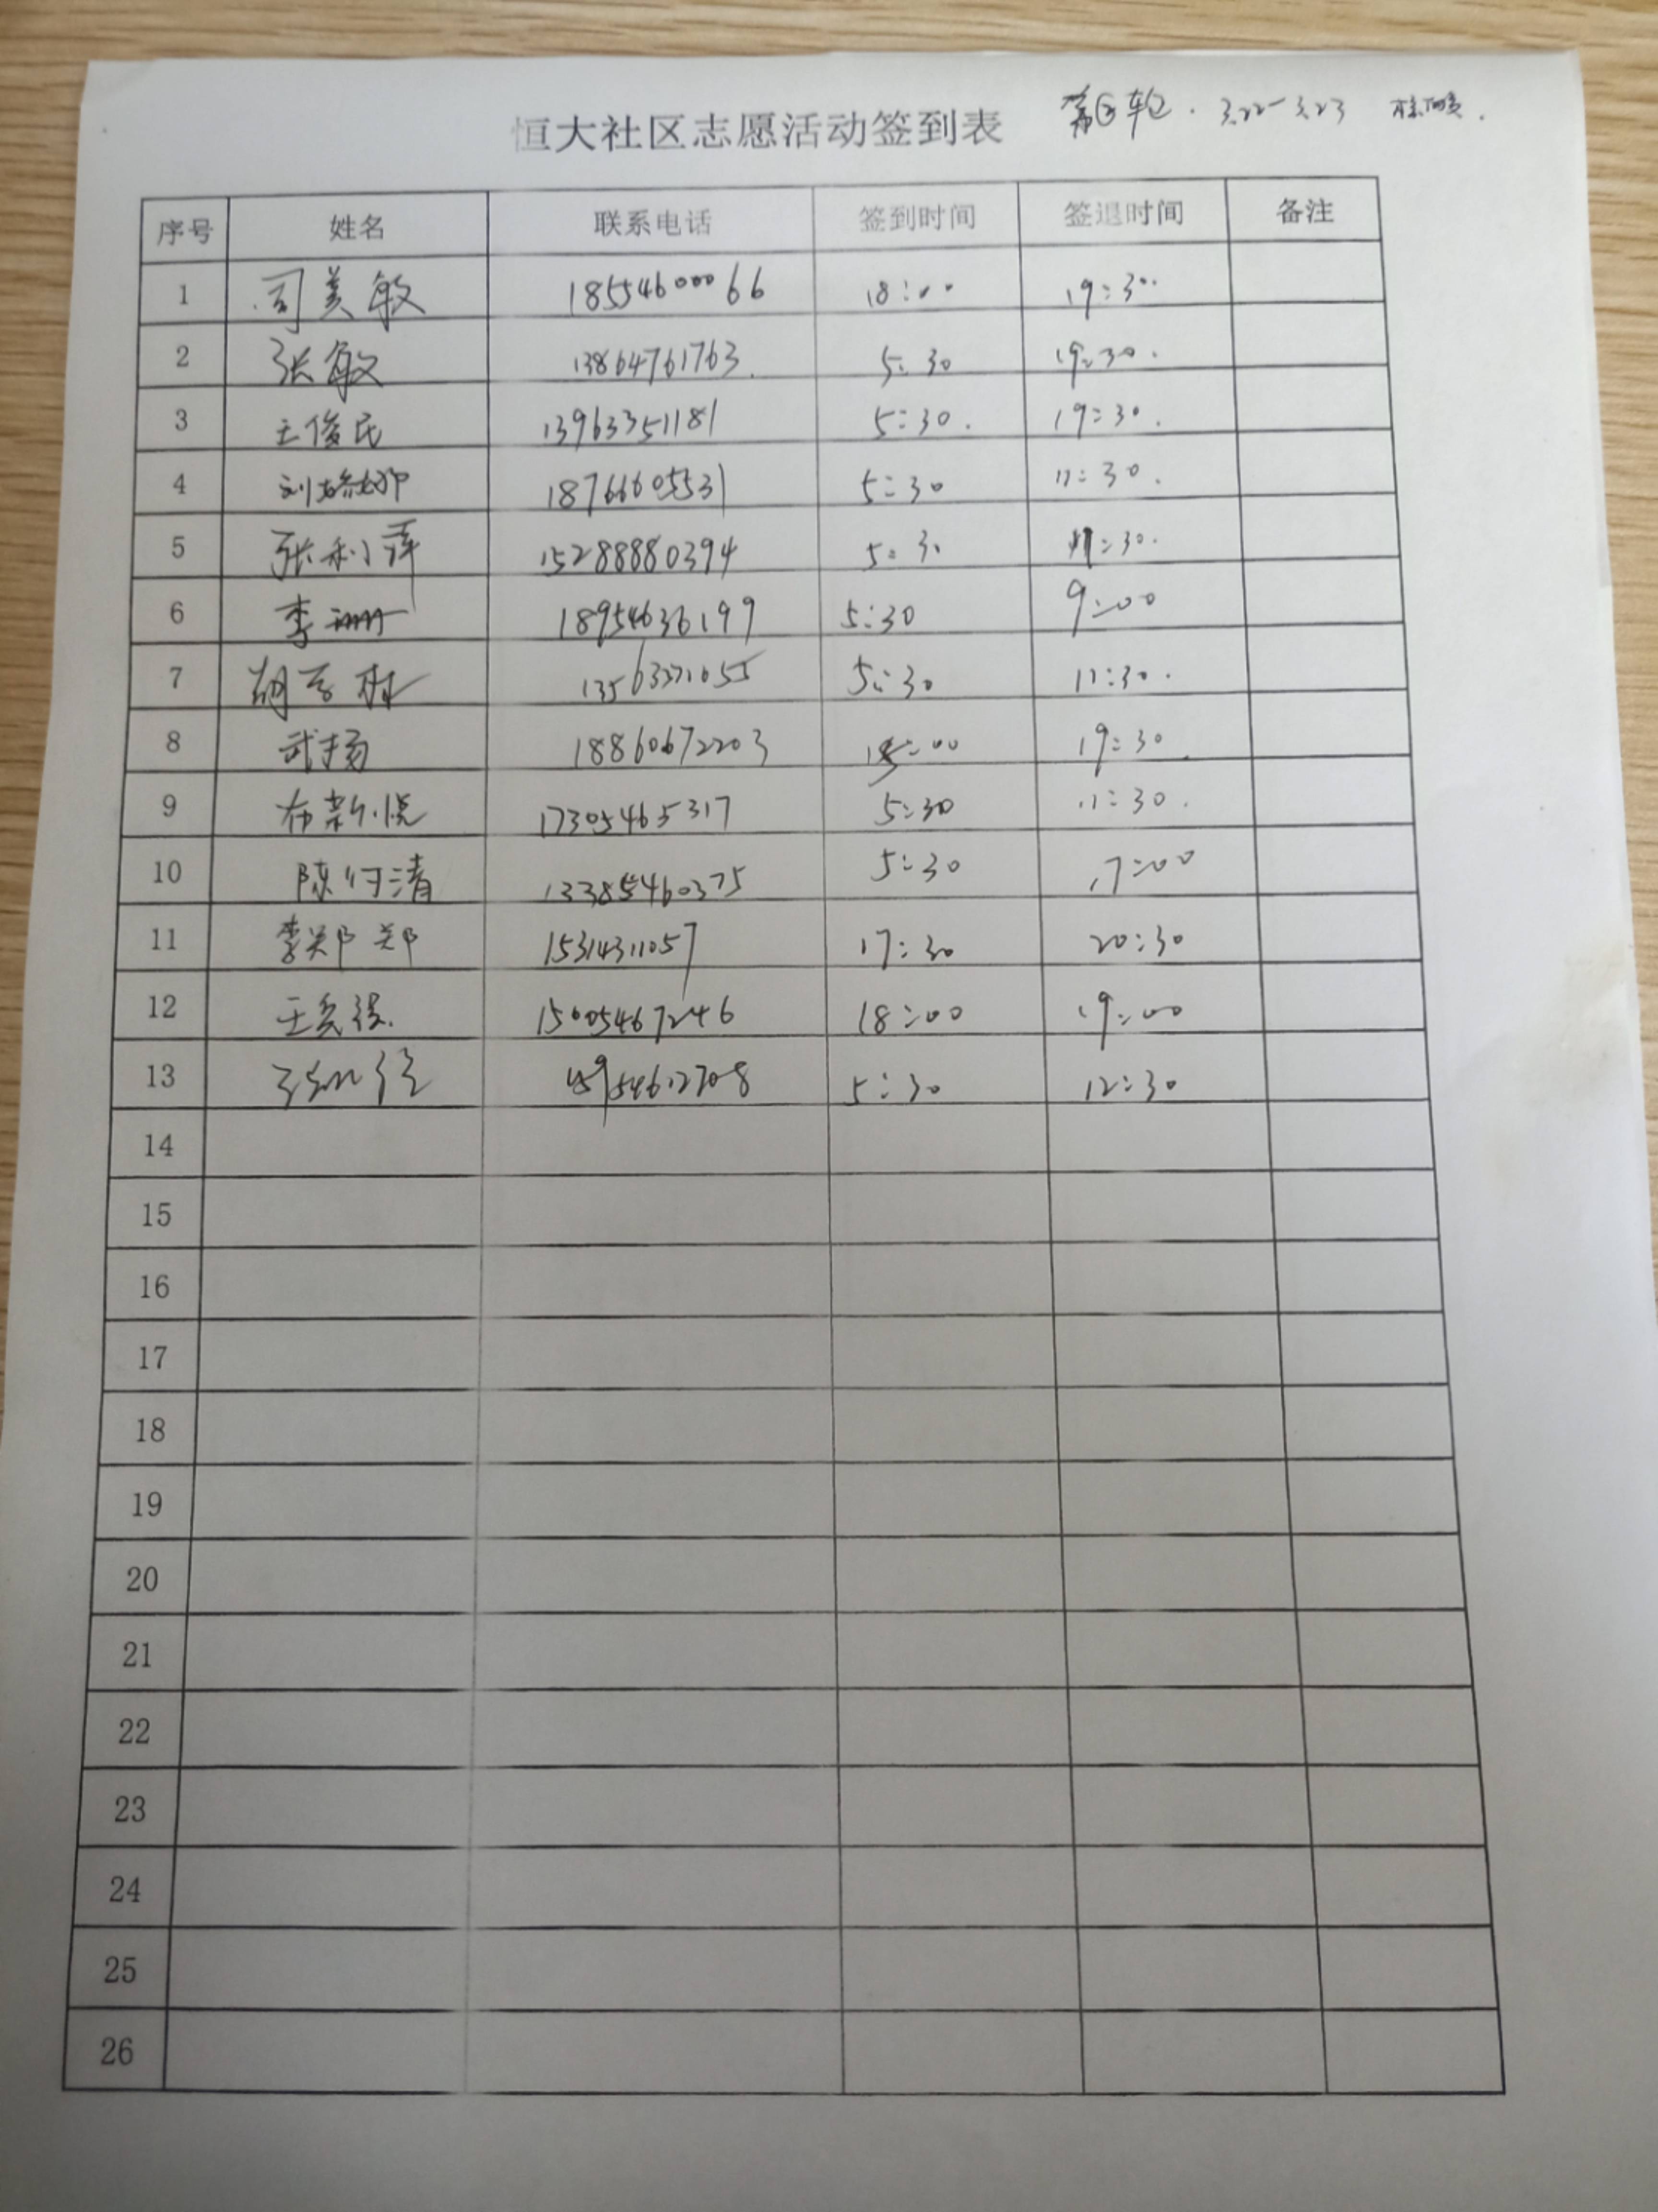 恒大社区志愿活动签到表 3.22-3.23
序号 姓名 联系电话 签到时间 签退时间 备注
1 司美敏 18554600066 18:00 19:30
2 张敏 13864761763 5:30 19:30
3 王俊民 13963351181 5:30 19:30
4 刘 18766605531 5:30 11:30
5 张利萍 15288880394 5:30 11:30
6 李珊 18954636199 5:30 9:00
7 胡 13563371055 5:30 11:30
8 武扬 18860672203 19:30
9 布新悦 17305465317 5:30 11:30
10 陈何清 13385460375 5:30 17:00
11 李郑郑 15314311057 17:30 20:30
12 王 15005467246 18:00 19:00
13 5:30 12:30
14
15
16
17
18
19
20
21
22
23
24
25
26